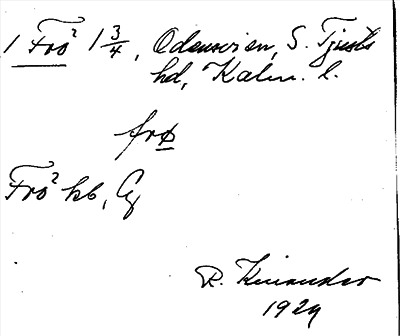 1 Frö² 1 3/4, Odensvien, S. Tjusts
hd, Kalm. l.
frø
Frö² hb, Cg
R. Kinander
1929